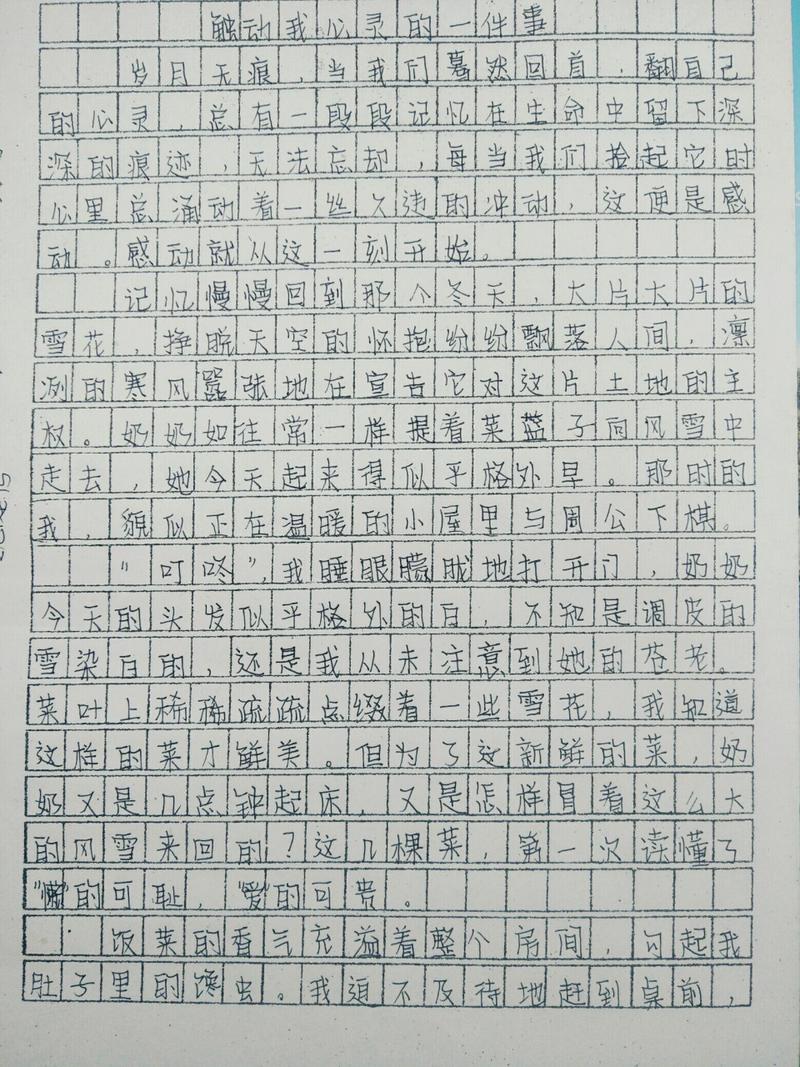 触动我心灵的一件事
岁月无痕，当我们蓦然回首，翻自己
的心灵，总有一段段记忆在生命中留下深
深的痕迹，无法忘却，每当我们捡起它时
心里总涌动着一丝久违的冲动，这便是感
动。感动就从这一刻开始。
记忆慢慢回到那个冬天，大片大片的
雪花，挣脱天空的怀抱纷纷飘落人间，凛
冽的寒风嚣张地在宣告它对这片土地的主
权。奶奶如往常一样提着菜篮子向风雪中
走去，她今天起来得似乎格外早。那时的
我，貌似正在温暖的小屋里与周公下棋。
“叮咚”，我睡眼朦胧地打开门，奶奶
今天的头发似乎格外的白，不知是调皮的
雪染白的，还是我从未注意到她的苍老。
菜叶上稀稀疏疏点缀着一些雪花，我知道
这样的菜才鲜美。但为了这新鲜的菜，奶
奶又是几点钟起床，又是怎样冒着这么大
的风雪来回的？这几棵菜，第一次读懂了
“懒”的可耻，“爱”的可贵。
饭菜的香气充溢着整个房间，勾起我
肚子里的馋虫。我迫不及待地赶到桌前，